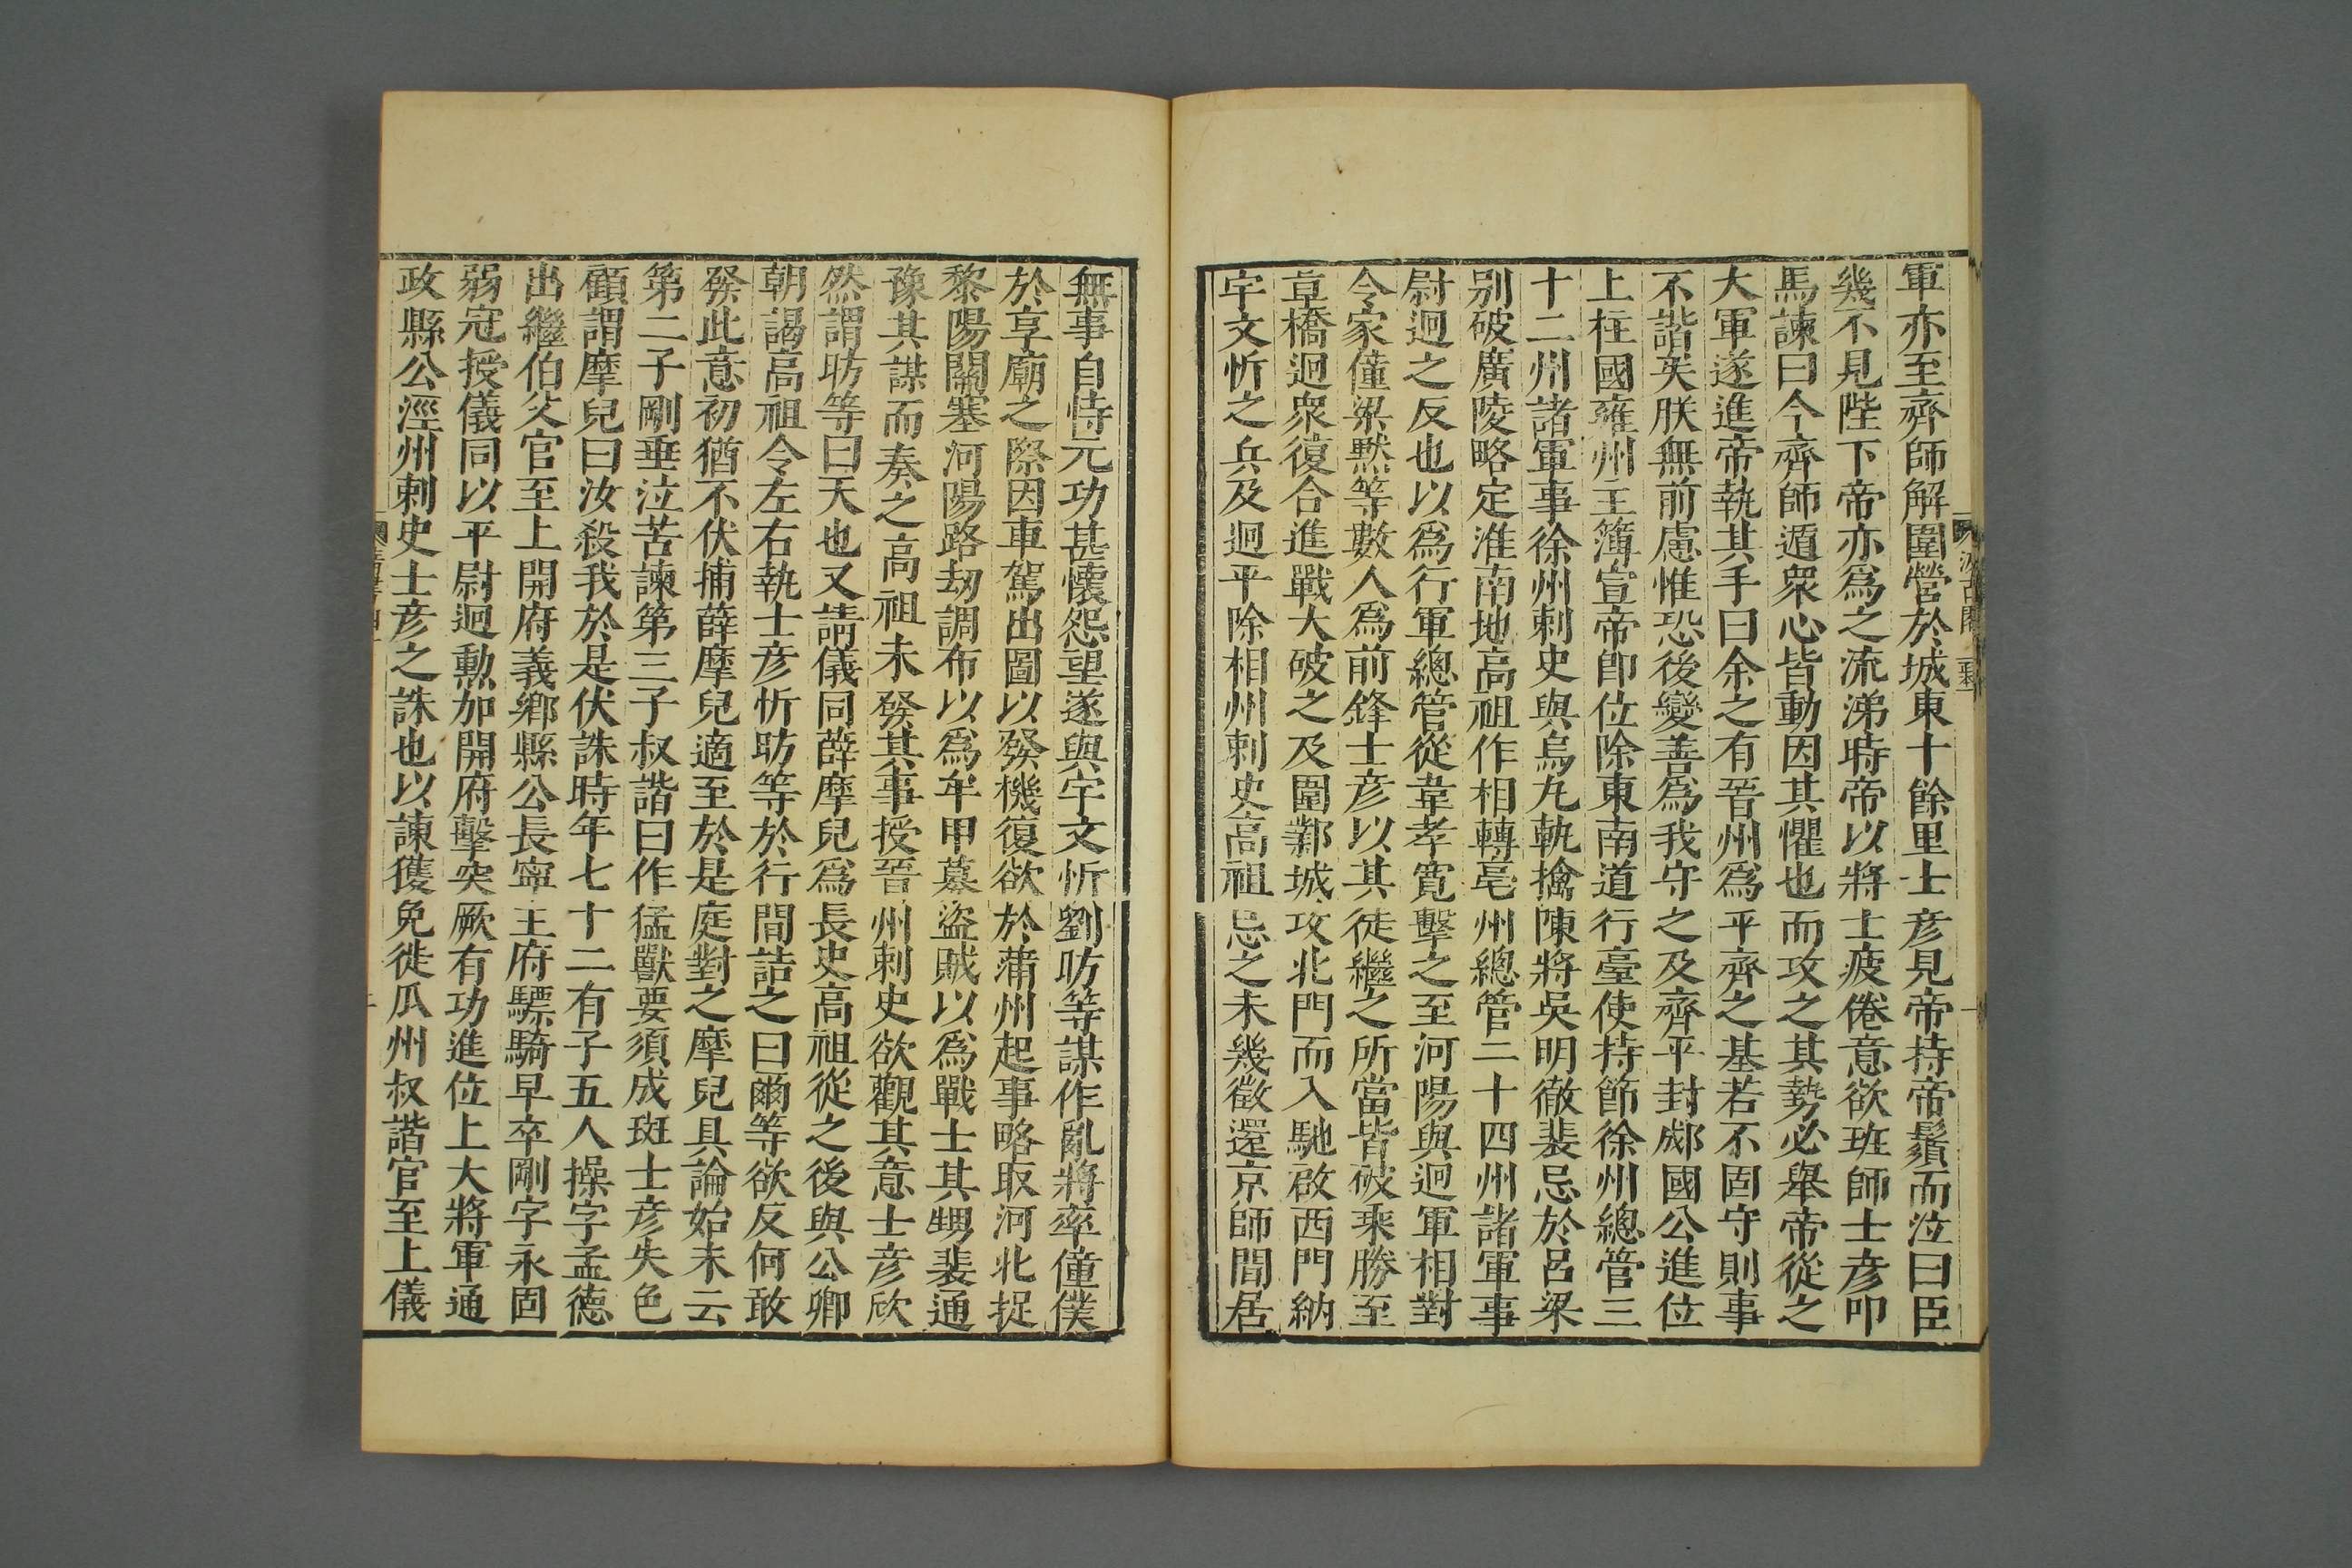 軍亦至齊師解圍營於城東十餘里士彥見帝持帝鬚而泣曰臣
幾不見陛下帝亦爲之流涕時帝以將士疲倦意欲班師士彥叩
馬諫曰今齊師遁衆心皆動因其懼也而攻之其勢必舉帝從之
大軍遂進帝執其手曰余之有晉州爲平齊之基若不固守則事
不諧矣朕無前慮惟恐後變善爲我守之及齊平封郕國公進位
上柱國雍州主簿宣帝卽位除東南道行臺使持節徐州總管三
十二州諸軍事徐州刺史與烏丸軌擒陳將吳明徹裴忌於呂梁
別破廣陵略定淮南地高祖作相轉亳州總管二十四州諸軍事
尉迥之反也以爲行軍總管從韋孝寬擊之至河陽與迥軍相對
令家僮梁默等數人爲前鋒士彥以其徒繼之所當皆破乘勝至
草橋迥衆復合進戰大破之及圍鄴城攻北門而入馳啟西門納
宇文忻之兵及迥平除相州刺史高祖忌之未幾徵還京師閒居
無事自恃元功甚懷怨望遂與宇文忻劉昉等謀作亂將率僮僕
於享廟之際因車駕出圖以發機復欲於蒲州起事略取河北捉
黎陽關塞河陽路劫調布以爲牟甲募盜賊以爲戰士其甥裴通
豫其謀而奏之高祖未發其事授晉州刺史欲觀其意士彥欣
然謂昉等曰天也又請儀同薛摩兒爲長史高祖從之後與公卿
朝謁高祖令左右執士彥忻昉等於行間詰之曰爾等欲反何敢
發此意初猶不伏捕薛摩兒適至於是庭對之摩兒具論始末云
第二子剛垂泣苦諫第三子叔諧曰作猛獸要須成斑士彥失色
顧謂摩兒曰汝殺我於是伏誅時年七十二有子五人操字孟德
出繼伯父官至上開府義鄉縣公長寧王府驃騎早卒剛字永固
弱冠授儀同以平尉迥勲加開府擊突厥有功進位上大將軍通
政縣公涇州刺史士彥之誅也以諫獲免徙瓜州叔諧官至上儀